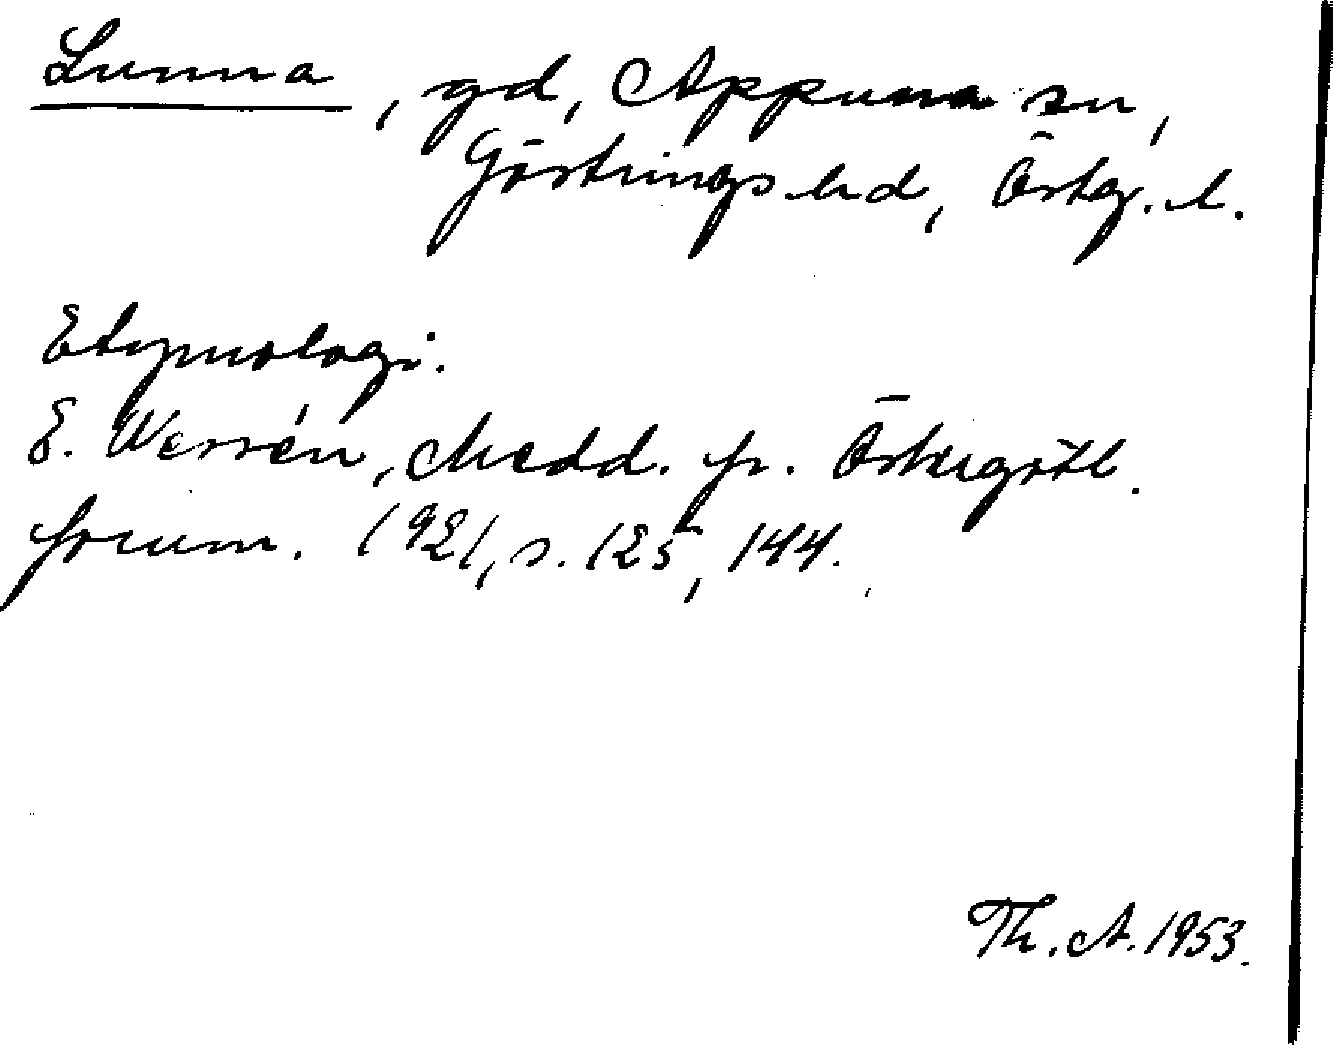 Lunna, gd, Appuna sn,
Göstrings hd, Östg. l.
Etymologi.
E. Wessén, Medd. fr. Östergötl.
fornm. 1921, s. 125, 144.
Th. A. 1953.